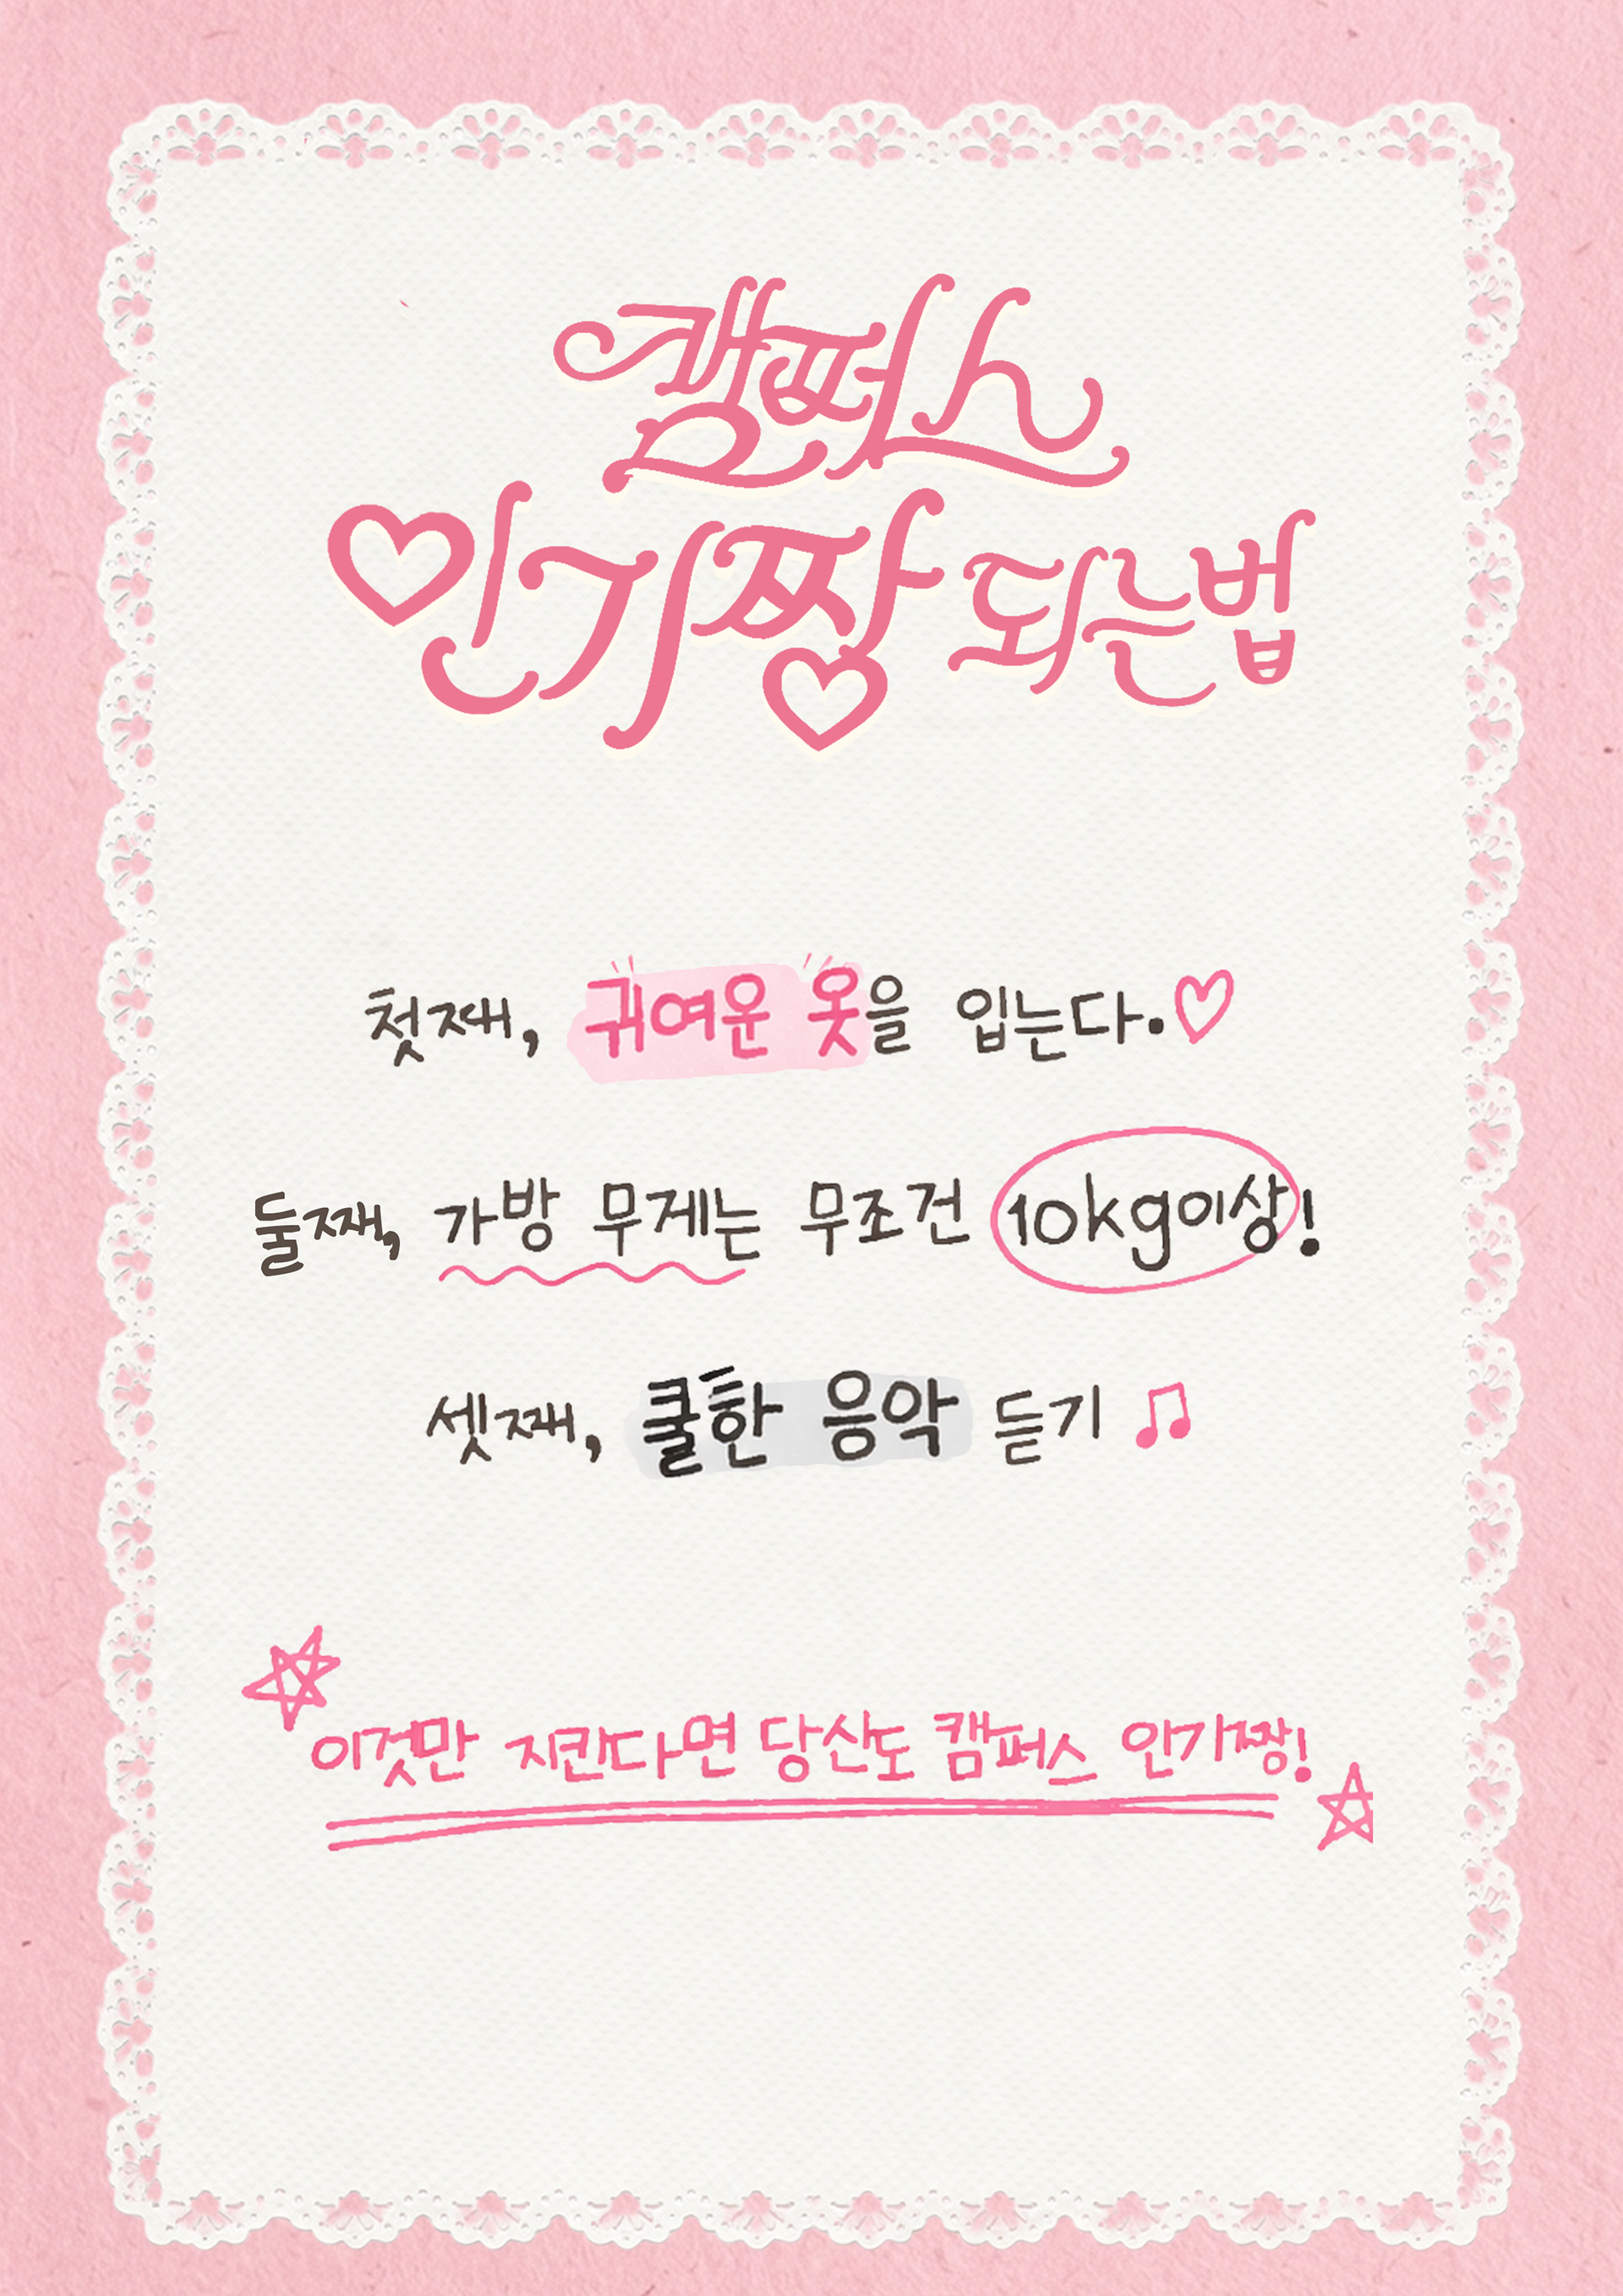 캠퍼스
인기짱 되는법
첫째, 귀여운 옷을 입는다.♡
둘째, 가방 무게는 무조건 10kg이상!
셋째, 쿨한 음악 듣기 ♫
이것만 지킨다면 당신도 캠퍼스 인기짱!